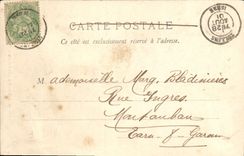 CARTE POSTALE
Ce côté est exclusivement réservé à l'adresse.
M ademoiselle Marg. Bladinières
Rue Ingres
Montauban
Tarn-&-Garonne